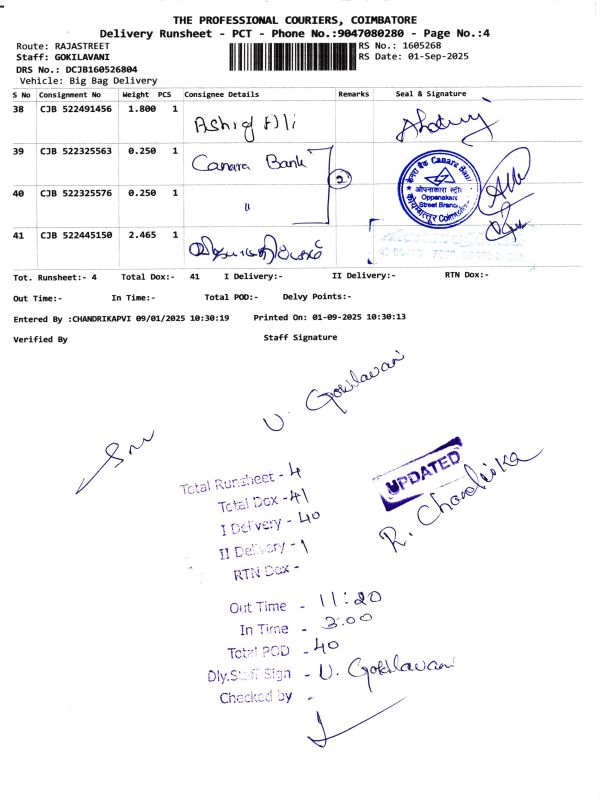 THE PROFESSIONAL COURIERS, COIMBATORE
Delivery Runsheet - PCT - Phone No.:9047080280 - Page No.:4
Route: RAJASTREET
RS No.: 1605268
Staff: GOKILAVANI
RS Date: 01-Sep-2025
DRS No.: DCJB160526804
Vehicle: Big Bag Delivery
S No Consignment No Weight PCS Consignee Details Remarks Seal & Signature
38 CJB 522491456 1.800 1 Ashif Alli
39 CJB 522325563 0.250 1 Canara Bank
2
40 CJB 522325576 0.250 1 "
केनरा बैंक Canara Bank
ओपनाकारा स्ट्रीट
Oppanakara
Street Branch
कोयम्बत्तूर Coimbatore
41 CJB 522445150 2.465 1
Tot. Runsheet:- 4 Total Dox:- 41 I Delivery:- II Delivery:- RTN Dox:-
Out Time:- In Time:- Total POD:- Delvy Points:-
Entered By :CHANDRIKAPVI 09/01/2025 10:30:19 Printed On: 01-09-2025 10:30:13
Verified By Staff Signature
V. Gokilavani
UPDATED
R. Chandrika
Total Runsheet - 4
Total Dox - 41
I Delivery - 40
II Delivery - 1
RTN Dox -
Out Time - 11:20
In Time - 3.00
Total POD - 40
Dly.Staff Sign - V. Gokilavani
Checked by -